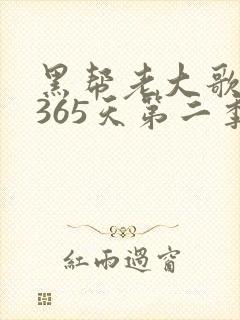 黑帮老大歌
365天第二季
紅雨過窗